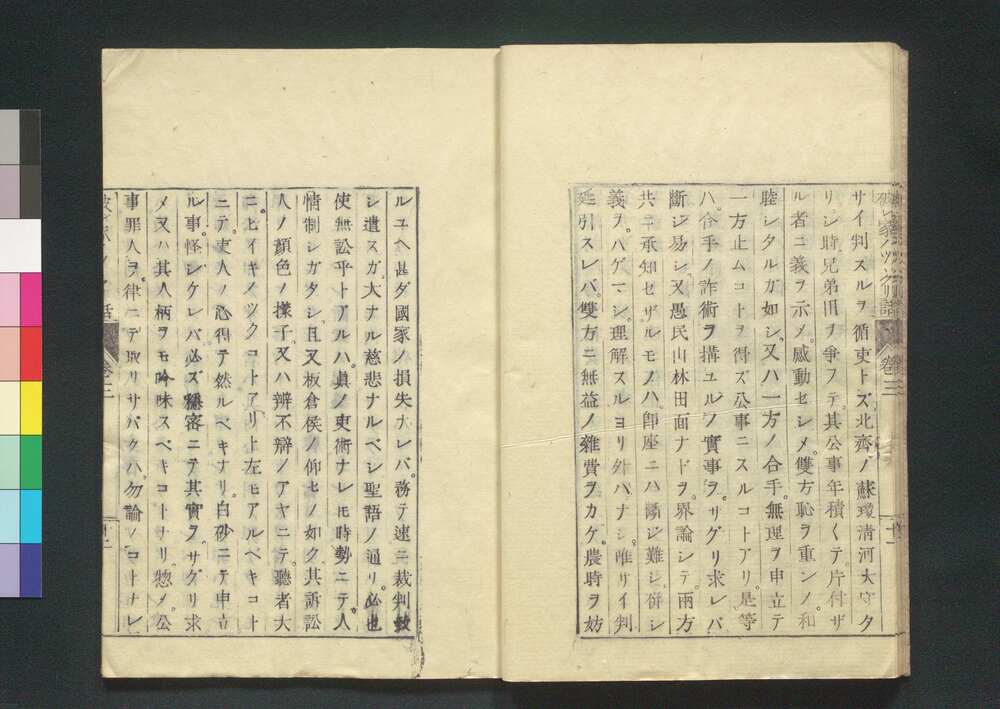 サイ判スルヲ循吏トズ北齊ノ蘇瓊清河大守タ
リシ時兄弟田ヲ爭フテ其公事年積クテ片付ザ
ル者ニ義ヲ示メ感動セシメ雙方恥ヲ重ンノ和
睦シタルガ如シ又ハ一方ノ合手無理ヲ申立テ
一方止ムコトヲ得ズ公事ニスルコトアリ是等
ハ合手ノ詐術ヲ搆ユルノ實事ヲサグリ求レバ
斷ジ易シ又愚民山林田面ナドヲ界論シテ兩方
共ニ承知セザルモノハ即座ニハ斷シ難シ併シ
義ヲハゲマシ理解スルヨリ外ハナシ唯リイ判
延引スレバ雙方ニ無益ノ雜費ヲカケ農時ヲ妨
卷三
十一
ルユヘ甚ダ國家ノ損失ナレバ務テ速ニ裁判致
シ遣スガ大ナル慈悲ナルベシ聖語ノ通リ必也
使無訟乎トアルハ眞ノ吏術ナレ𪜈時勢ニテ人
情制シガタシ且又板倉侯ノ仰セノ如ク其訴訟
人ノ顔色ノ樣子又ハ辨不辯ノアヤニテ聽者大
ニヒイキノツクコトアリト左モアルベキコト
ニテ吏人ノ心得テ然ルベキナリ白砂ニテ申立
ル事怪シケレバ必ズ極密ニテ其實ヲサグリ求
メ又ハ其人柄ヲモ吟味スベキコトナリ惣メ公
事罪人ヲ律ニテ取リサバクハ勿論ノコトナレ